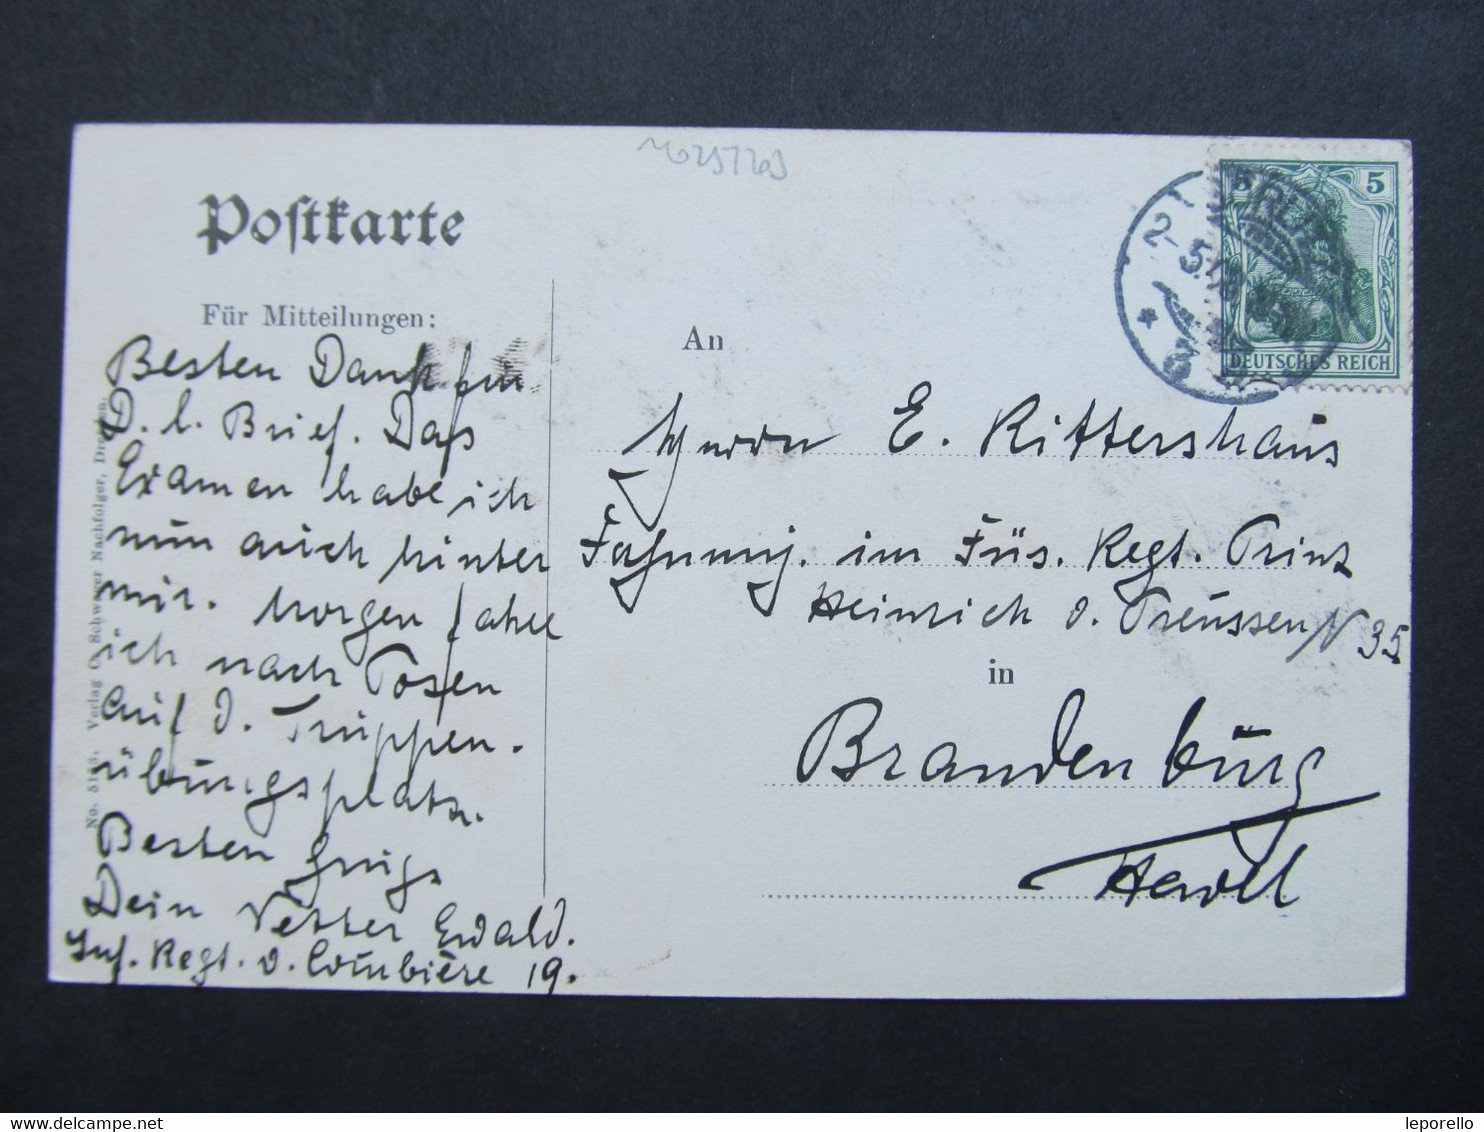 Postkarte
Für Mitteilungen:
Besten Dank für
D. l. Brief. Das
Examen habe ich
nun auch hinter
mir. Morgen fahre
ich nach Posen
auf d. Truppen-
übungsplatz.
Besten Gruß
Dein Vetter Ewald.
Inf. Regt. v. Courbière 19.
No. 5163. Verlag C. Schwager Nachfolger, Dresden.
An
Herrn E. Rittershaus
Fahnenj. im Füs. Regt. Prinz
Heinrich v. Preussen N 35
in
Brandenburg
Havel
5 5
DEUTSCHES REICH
GÖRLITZ
2-5
* 3
leporello